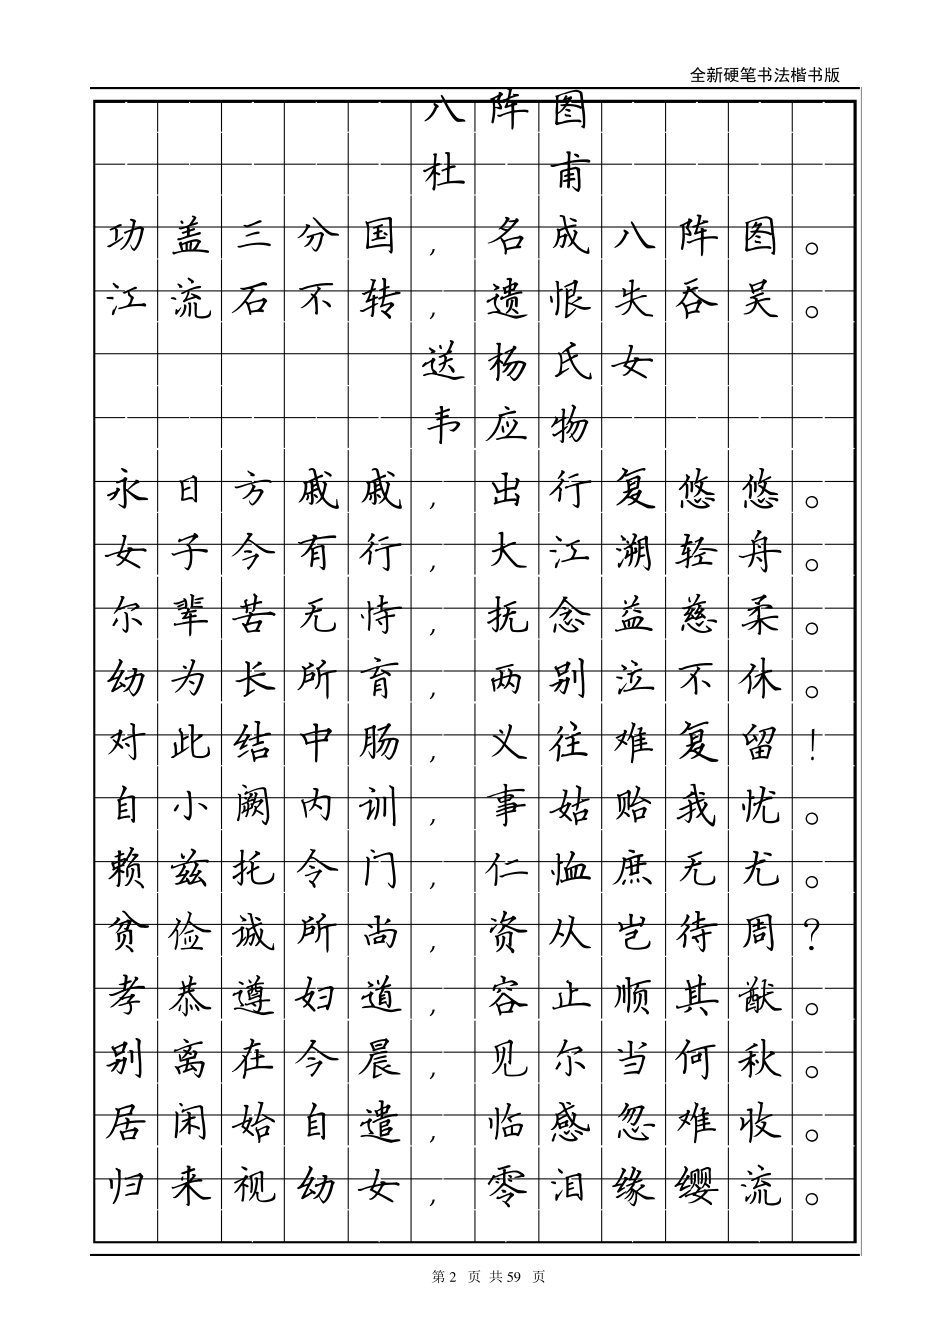 全新硬笔书法楷书版
八阵图
杜 甫
功盖三分国,名成八阵图。
江流石不转,遗恨失吞吴。
送杨氏女
韦应物
永日方戚戚,出行复悠悠。
女子今有行,大江溯轻舟。
尔辈苦无恃,抚念益慈柔。
幼为长所育,两别泣不休。
对此结中肠,义往难复留!
自小阙内训,事姑贻我忧。
赖兹托令门,仁恤庶无尤。
贫俭诚所尚,资从岂待周?
孝恭遵妇道,容止顺其猷。
别离在今晨,见尔当何秋。
居闲始自遣,临感忽难收。
归来视幼女,零泪缘缨流。
第 2 页 共 59 页